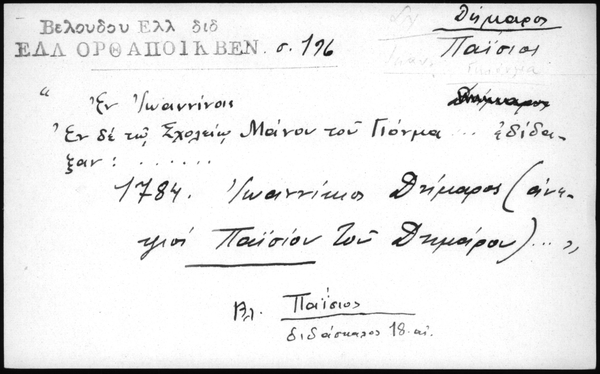 Βελουδου Ελλ διδ
ΕΛΛ ΟΡΘΑΠΟΙΚΒΕΝ. σ. 196
Δήμαρος
Παΐσιος
"Ἐν Ἰωαννίνοις
Ἐν δὲ τῷ Σχολείῳ Μάνου τοῦ Γιόνμα ... ἐδίδα-
ξαν: ......
1784. Ἰωαννίκιος Δήμαρος (ἀνε-
ψιοί Παϊσίου τοῦ Δημάρου) ..."
Βλ. Παΐσιος
διδάσκαλος 18. αἰ.